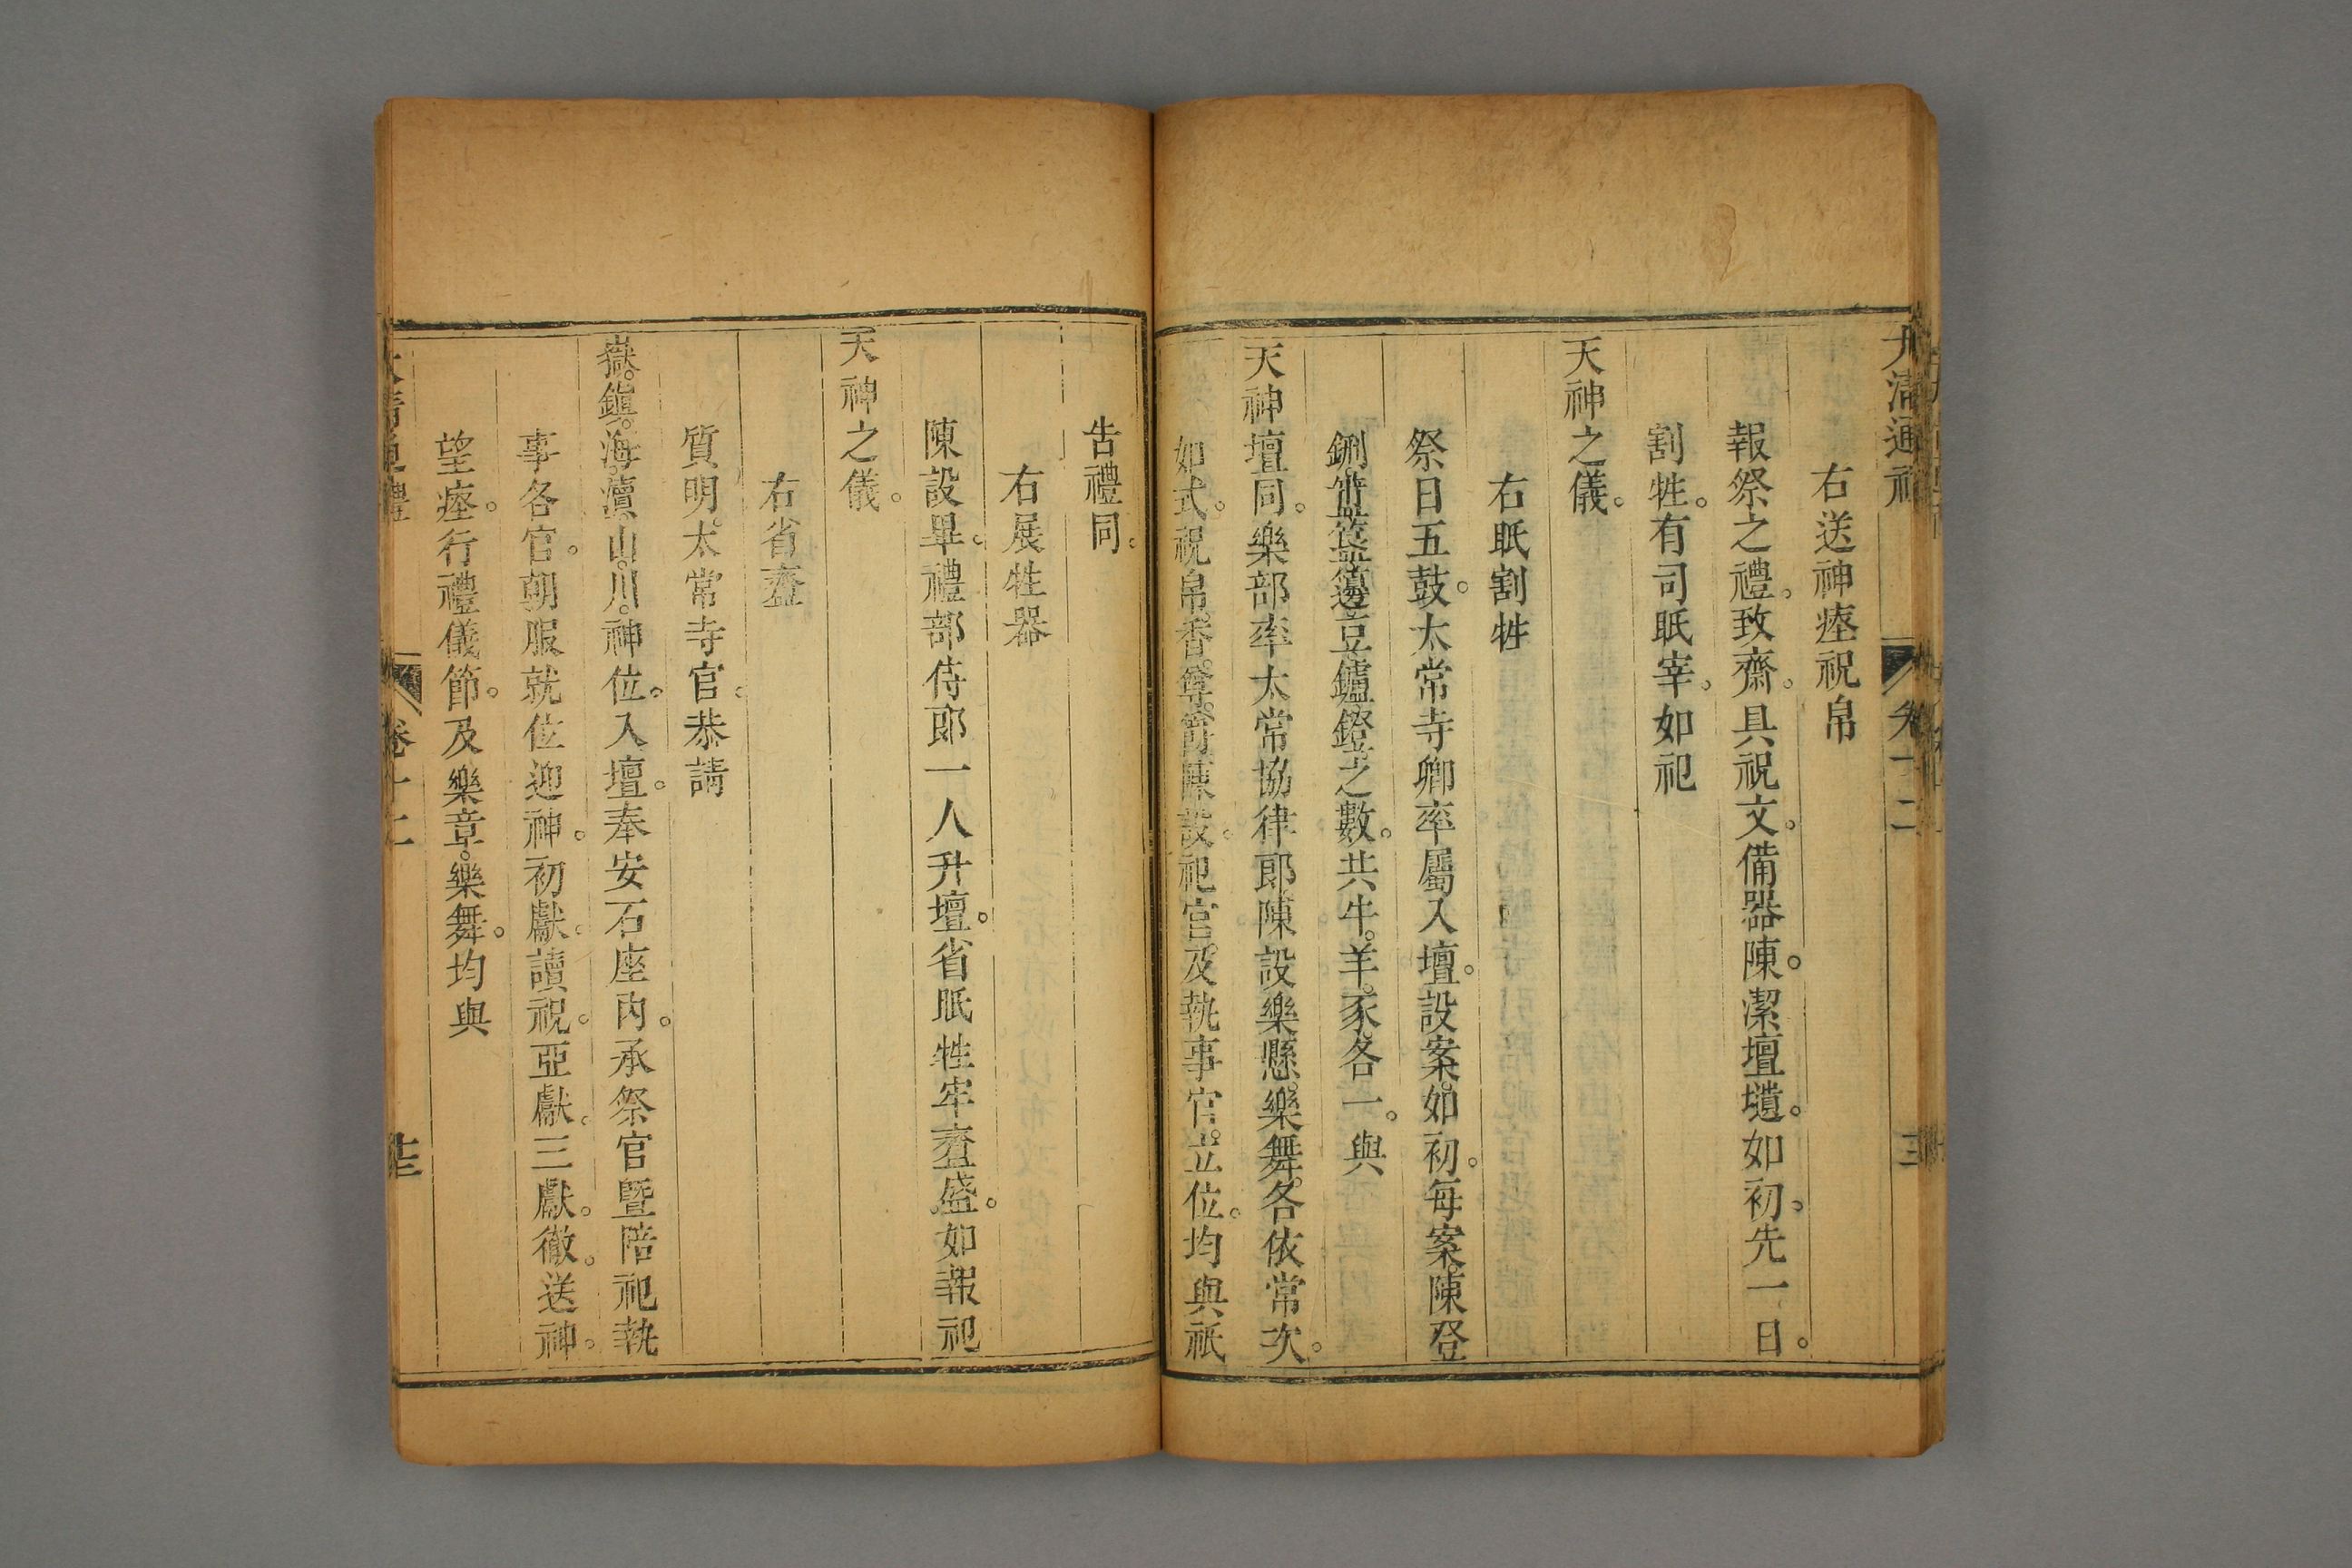 大清通禮
卷十二
右送神瘞祝帛
報祭之禮。致齋。具祝文。備器陳。潔壇壝。如初。先一日。
割牲。有司眂宰。如祀
天神之儀。
右眂割牲
祭日五鼓。太常寺卿率屬入壇。設案。如初。每案。陳登
鉶。簠簋籩豆鑪鐙之數。共牛。羊。豕。各一。與
天神壇同。樂部率太常協律郎陳設樂懸。樂舞。各依常次。
如式。祝帛。香。尊。爵陳設。祀官。及執事官。立位。均與祇
告禮同。
右展牲器
陳設畢。禮部侍郎一人升壇。省眂牲牢齍盛。如報祀
天神之儀。
右省齍
質明。太常寺官。恭請
嶽。鎮。海。瀆。山。川。神位。入壇。奉安石座內。承祭官暨陪祀執
事各官。朝服就位迎神。初獻。讀祝。亞獻。三獻。徹。送神。
望瘞。行禮儀節。及樂章。樂舞。均與
大清通禮
卷十二